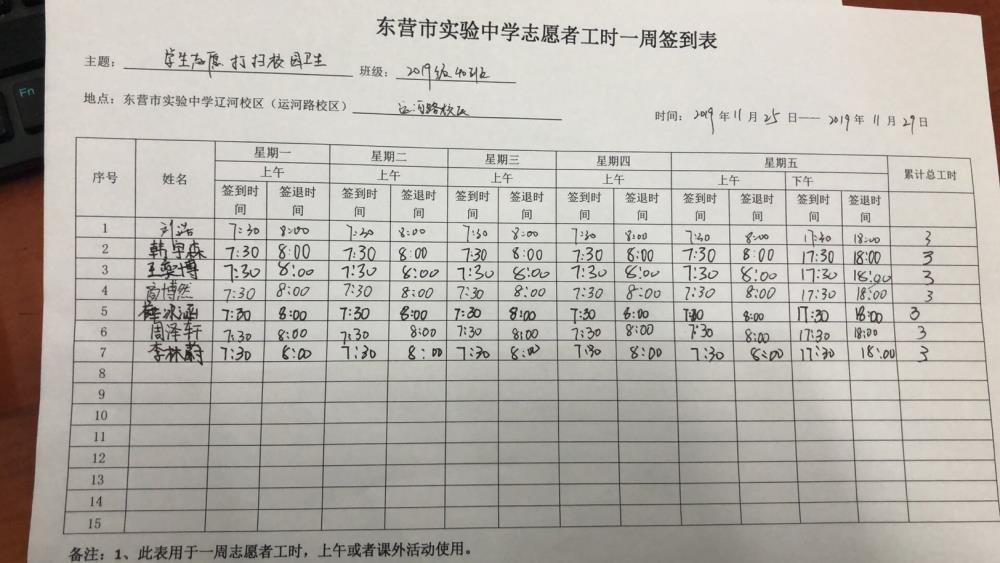 Fn
东营市实验中学志愿者工时一周签到表
主题：学生志愿打扫校园卫生 班级：2019级40班
地点：东营市实验中学辽河校区（运河路校区） 运河路校区 时间：2019年11月25日——2019年11月29日
序号 姓名 星期一 星期二 星期三 星期四 星期五 累计总工时
上午 上午 上午 上午 上午 下午
签到时间 签退时间 签到时间 签退时间 签到时间 签退时间 签到时间 签退时间 签到时间 签退时间 签到时间 签退时间
1 刘浩 7:30 8:00 7:30 8:00 7:30 8:00 7:30 8:00 7:30 8:00 17:30 18:00 3
2 韩宇森 7:30 8:00 7:30 8:00 7:30 8:00 7:30 8:00 7:30 8:00 17:30 18:00 3
3 王奕博 7:30 8:00 7:30 8:00 7:30 8:00 7:30 8:00 7:30 8:00 17:30 18:00 3
4 高博然 7:30 8:00 7:30 8:00 7:30 8:00 7:30 8:00 7:30 8:00 17:30 18:00 3
5 冰涵 7:30 8:00 7:30 8:00 7:30 8:00 7:30 8:00 7:30 8:00 17:30 18:00 3
6 周泽轩 7:30 8:00 7:30 8:00 7:30 8:00 7:30 8:00 7:30 8:00 17:30 18:00 3
7 李林蔚 7:30 8:00 7:30 8:00 7:30 8:00 7:30 8:00 7:30 8:00 17:30 18:00 3
8
9
10
11
12
13
14
15
备注：1、此表用于一周志愿者工时，上午或者课外活动使用。